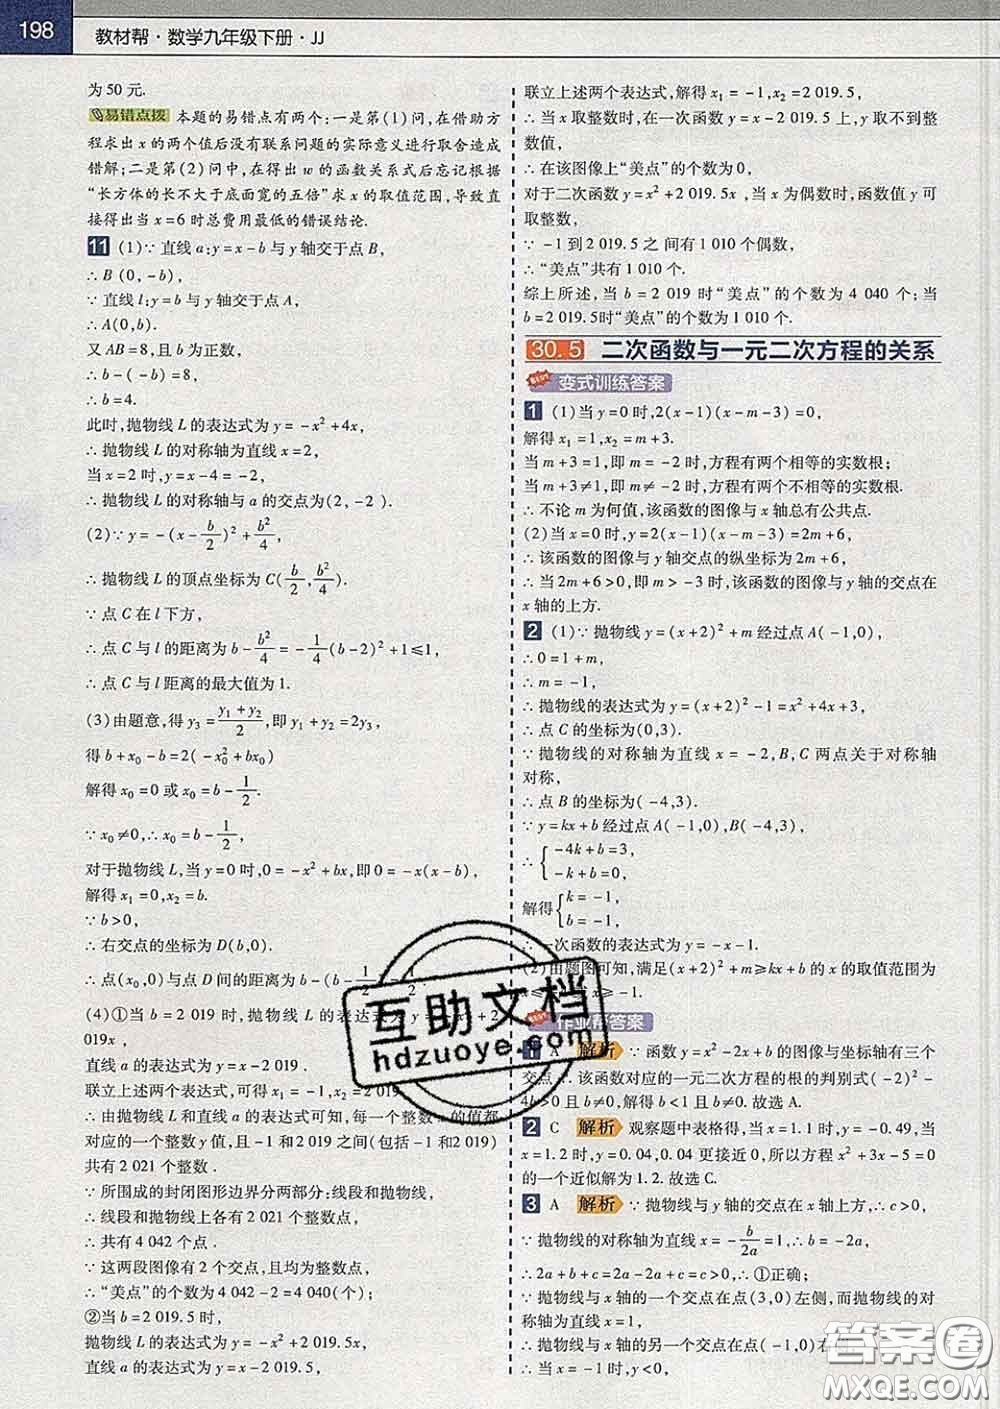 198
教材帮·数学九年级下册·JJ
为50元.
易错点拨 本题的易错点有两个:一是第(1)问,在借助方
程求出x的两个值后没有联系问题的实际意义进行取舍造成
错解;二是第(2)问中,在得出w的函数关系式后忘记根据
“长方体的长不大于底面宽的五倍”求x的取值范围,导致直
接得出当x=6时总费用最低的错误结论.
11 (1)∵直线a:y=x-b与y轴交于点B,
∴B(0,-b),
∵直线l:y=b与y轴交于点A,
∴A(0,b).
又AB=8,且b为正数,
∴b-(-b)=8,
∴b=4.
此时,抛物线L的表达式为y=-x²+4x,
∴抛物线L的对称轴为直线x=2,
当x=2时,y=x-4=-2,
∴抛物线L的对称轴与a的交点为(2,-2).
(2)∵y=-(x-b/2)²+b²/4,
∴抛物线L的顶点坐标为C(b/2,b²/4).
∵点C在l下方,
∴点C与l的距离为b-b²/4=-1/4(b-2)²+1≤1,
∴点C与l距离的最大值为1.
(3)由题意,得y₃=(y₁+y₂)/2,即y₁+y₂=2y₃,
得b+x₀-b=2(-x₀²+bx₀)
解得x₀=0或x₀=b-1/2.
∵x₀≠0,∴x₀=b-1/2,
对于抛物线L,当y=0时,0=-x²+bx,即0=-x(x-b),
解得x₁=0,x₂=b.
∵b>0,
∴右交点的坐标为D(b,0).
∴点(x₀,0)与点D间的距离为b-(b-1/2)=1/2.
(4)①当b=2 019时,抛物线L的表达式为y=-x²+2
019x,
直线a的表达式为y=x-2 019.
联立上述两个表达式,可得x₁=-1,x₂=2 019,
∴由抛物线L和直线a的表达式可知,每一个整数x的值都
对应的一个整数y值,且-1和2 019之间(包括-1和2 019)
共有2 021个整数.
∵所围成的封闭图形边界分两部分:线段和抛物线,
∴线段和抛物线上各有2 021个整数点,
∴共有4 042个点.
∵这两段图像有2个交点,且重复,
∴“美点”的个数为4 042-2=4 040(个);
②当b=2 019.5时,
抛物线L的表达式为y=-x²+2 019.5x,
直线a的表达式为y=x-2 019.5,
联立上述两个表达式,解得x₁=-1,x₂=2 019.5,
∴当x取整数时,在一次函数y=x-2 019.5上,y取不到整
数值,
∴在该图像上“美点”的个数为0,
对于二次函数y=x²+2 019.5x,当x为偶数时,函数值y可
取整数,
∵-1到2 019.5之间有1 010个偶数,
∴“美点”共有1 010个.
综上所述,当b=2 019时“美点”的个数为4 040个;当
b=2 019.5时“美点”的个数为1 010个.
30.5 二次函数与一元二次方程的关系
变式训练答案
1 (1)当y=0时,2(x-1)(x-m-3)=0,
解得x₁=1,x₂=m+3.
当m+3=1,即m=-2时,方程有两个相等的实数根;
当m+3≠1,即m≠-2时,方程有两个不相等的实数根.
∴不论m为何值,该函数的图像与x轴总有公共点.
(2)当x=0时,y=2(x-1)(x-m-3)=2m+6,
∴该函数的图像与y轴交点的纵坐标为2m+6,
∴当2m+6>0,即m>-3时,该函数的图像与y轴的交点在
x轴的上方.
2 (1)∵抛物线y=(x+2)²+m经过点A(-1,0),
∴0=1+m,
∴m=-1,
∴抛物线的表达式为y=(x+2)²-1=x²+4x+3,
∴点C的坐标为(0,3).
∵抛物线的对称轴为直线x=-2,B,C两点关于对称轴
对称,
∴点B的坐标为(-4,3).
∵y=kx+b经过点A(-1,0),B(-4,3),
∴{-4k+b=3,
-k+b=0,
解得{k=-1,
b=-1,
∴一次函数的表达式为y=-x-1.
(2)由题图可知,满足(x+2)²+m≥kx+b的x的取值范围为
x≤-4或x≥-1.
作业帮答案
1 A 解析 ∵函数y=x²-2x+b的图像与坐标轴有三个
交点,∴该函数对应的一元二次方程的根的判别式(-2)²-
4b>0且b≠0,解得b<1且b≠0.故选A.
2 C 解析 观察题中表格得,当x=1.1时,y=-0.49,当
x=1.2时,y=0.04,0.04更接近于0,所以方程x²+3x-5=0
的一个近似解为1.2.故选C.
3 A 解析 ∵抛物线与y轴的交点在x轴上方,∴c>0,
∵抛物线的对称轴为直线x=-b/2a=1,∴b=-2a,
∴2a+b+c=2a-2a+c=c>0,∴①正确;
∵抛物线与x轴的一个交点在点(3,0)左侧,而抛物线的对
称轴为直线x=1,
∴抛物线与x轴的另一个交点在点(-1,0)右侧,
∴当x=-1时,y<0,
互助文档
hdzuoye.com
答案圈
MXQE.COM